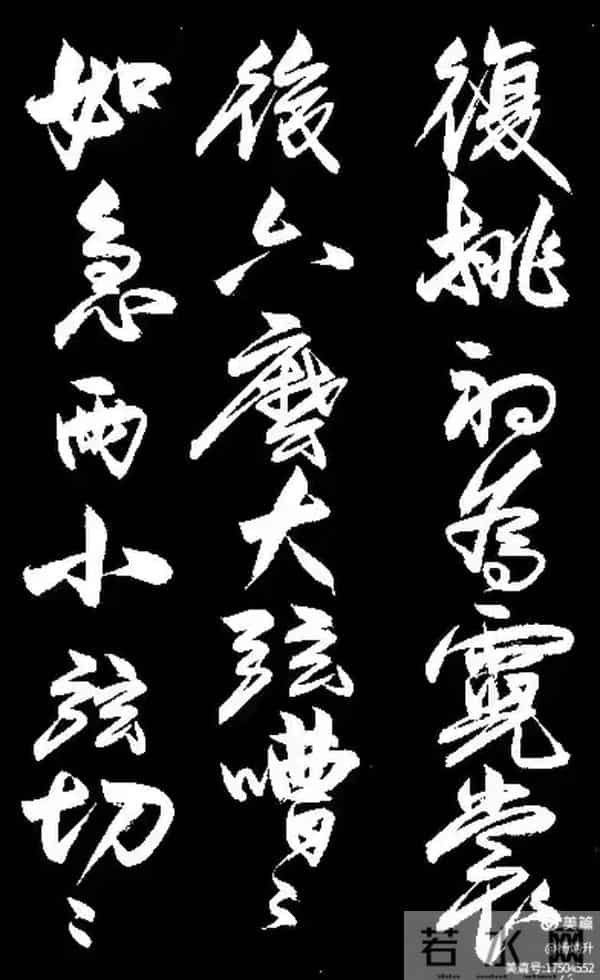 復挑初為霓裳
後六麼大弦嘈〻
如急雨小弦切〻
美篇
若水网
美篇号:17504552